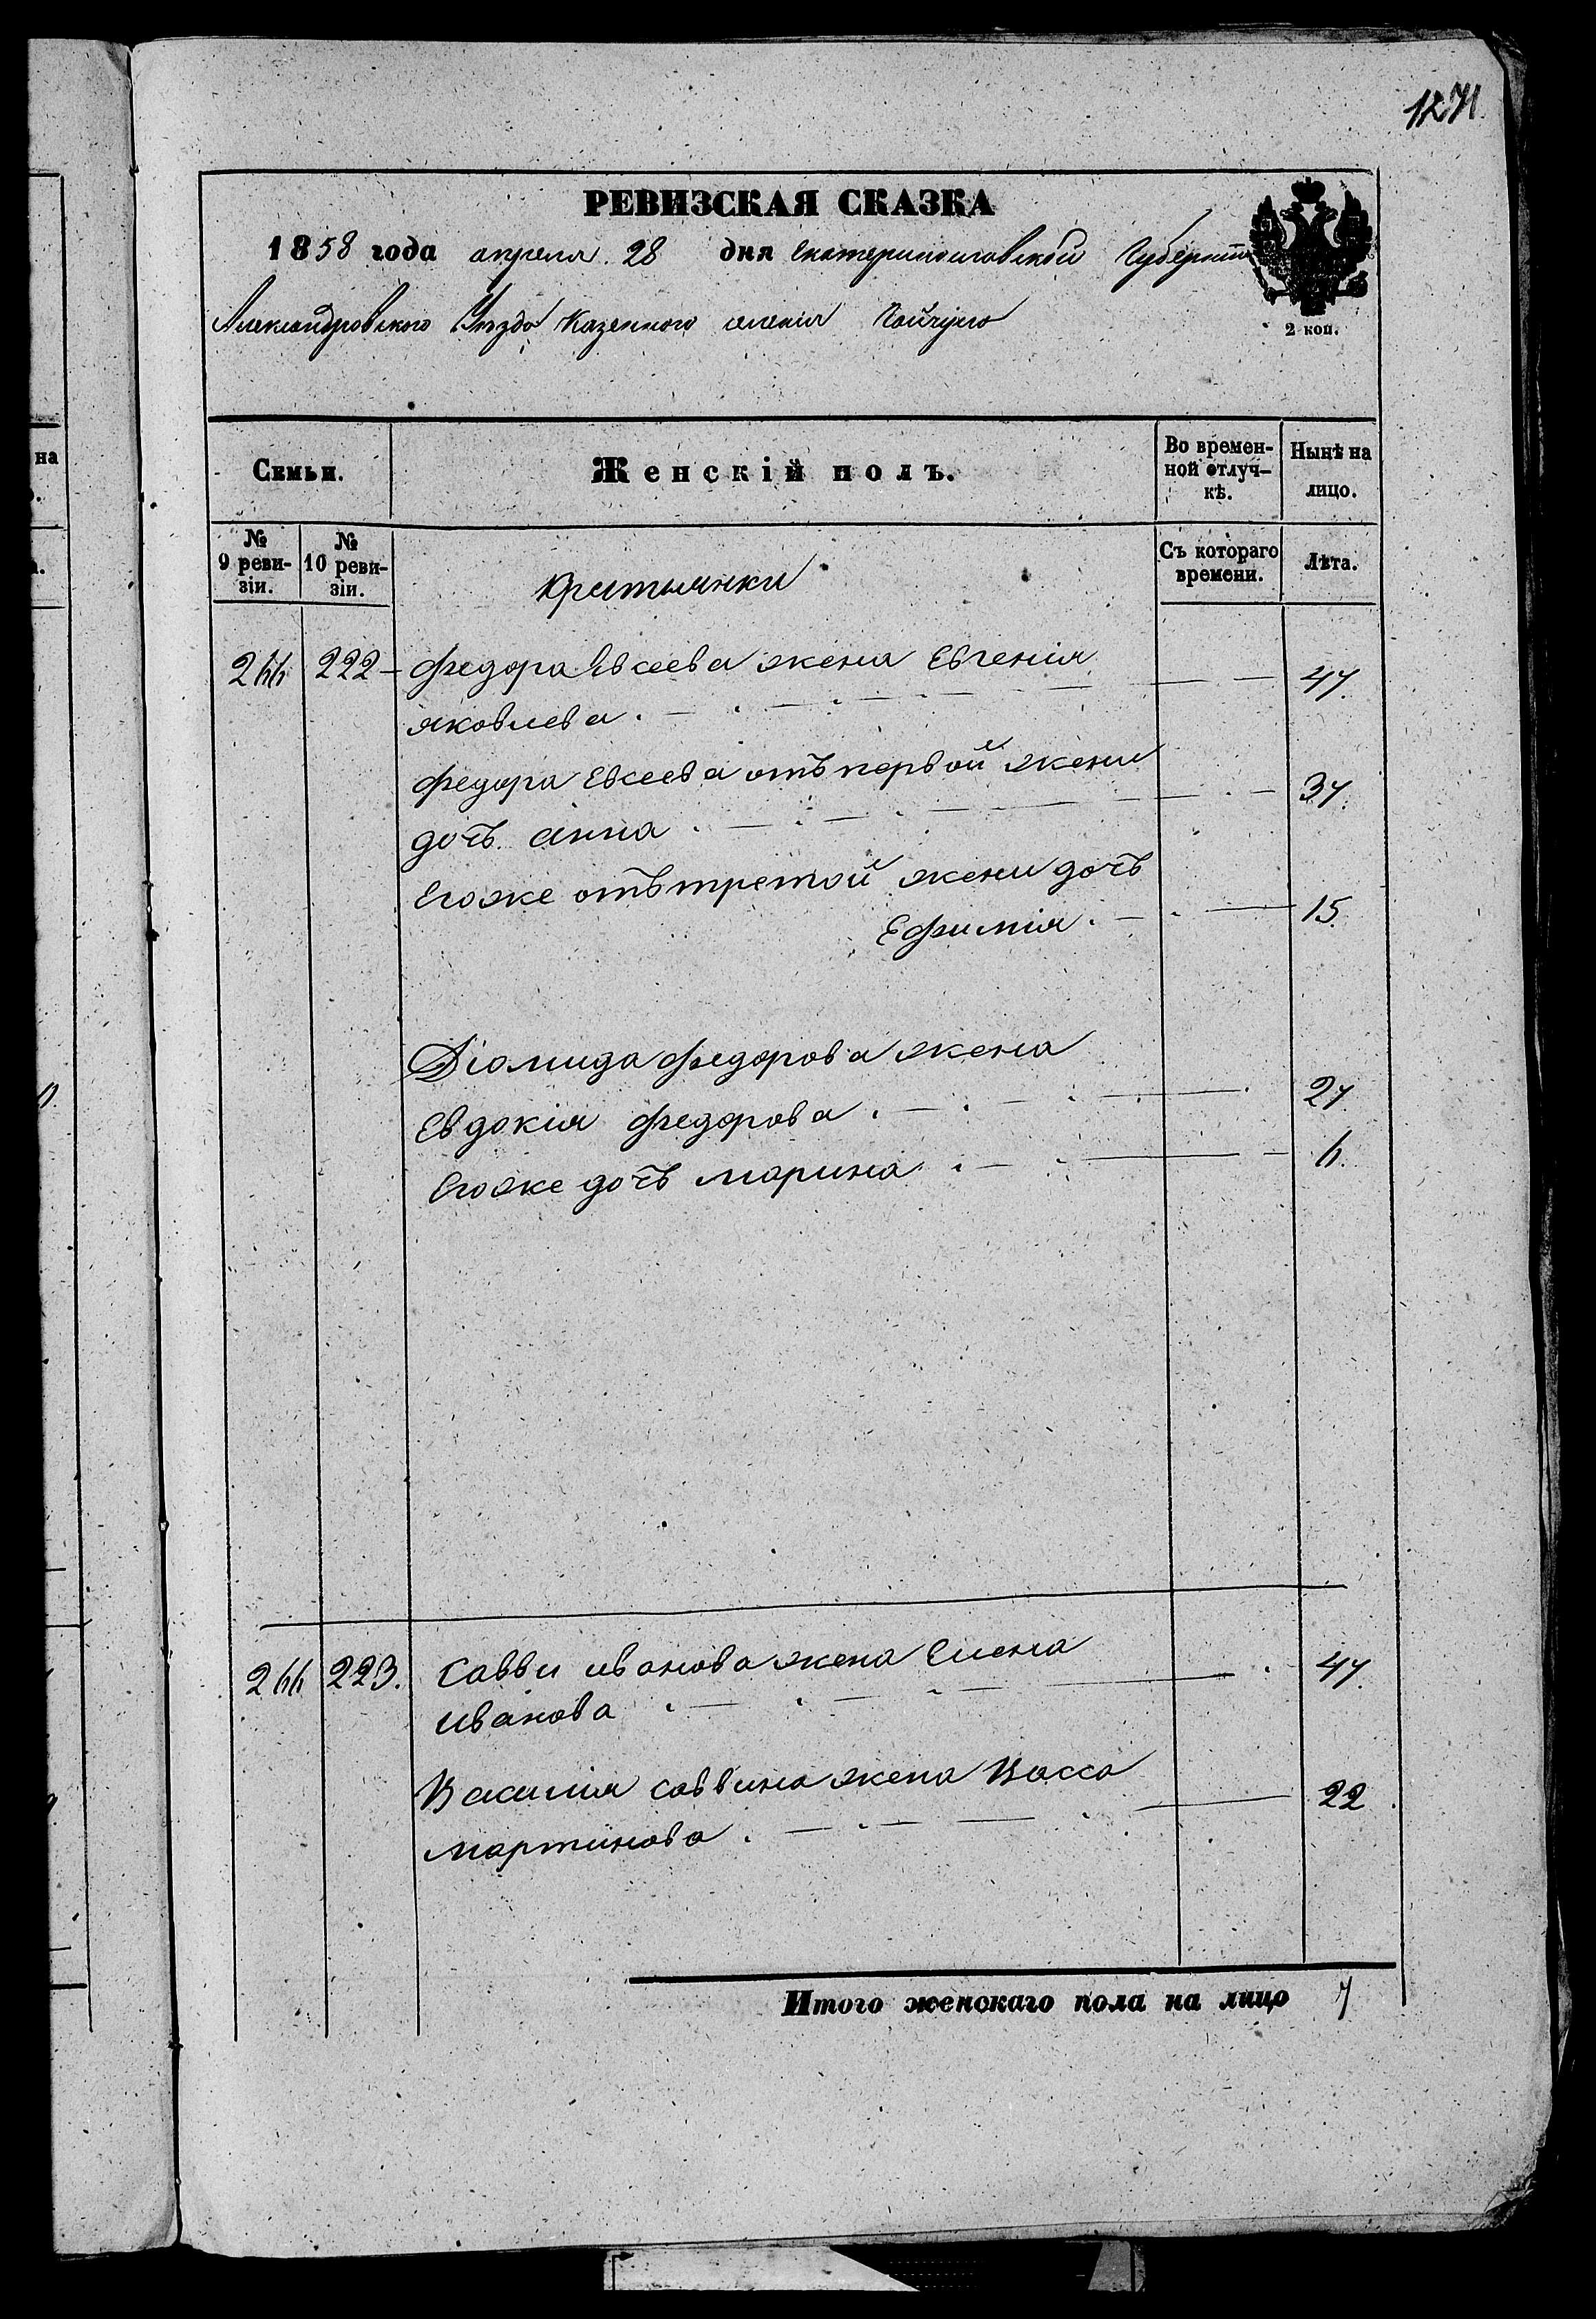 1271.
РЕВИЗСКАЯ СКАЗКА
1858 года апреля. 28 дня Екатеринославской Губернии
Александровского Уезда Казенного селения
2 коп.
Семьи.
Женскій полъ.
Во времен-
ной отлуч-
кѣ.
Нынѣ на
лицо.
№
9 реви-
зіи.
№
10 реви-
зіи.
Съ котораго
времени.
Лѣта.
Крестьянки
266 222 Федора Евсеева жена Евгенія
Яковлева 47.
Федора Евсеева отъ первой жени
дочъ Анна 37.
Егоже отъ третой жени дочъ
Ефимія 15.
Діомида Федорова жена
Евдокія Федорова 27
Егоже дочъ Марина 6.
266 223. Савви Иванова жена Елена
Иванова 47.
Василія Саввина жена Васса
Мартинова 22
Итого женскаго пола на лицо 7
на